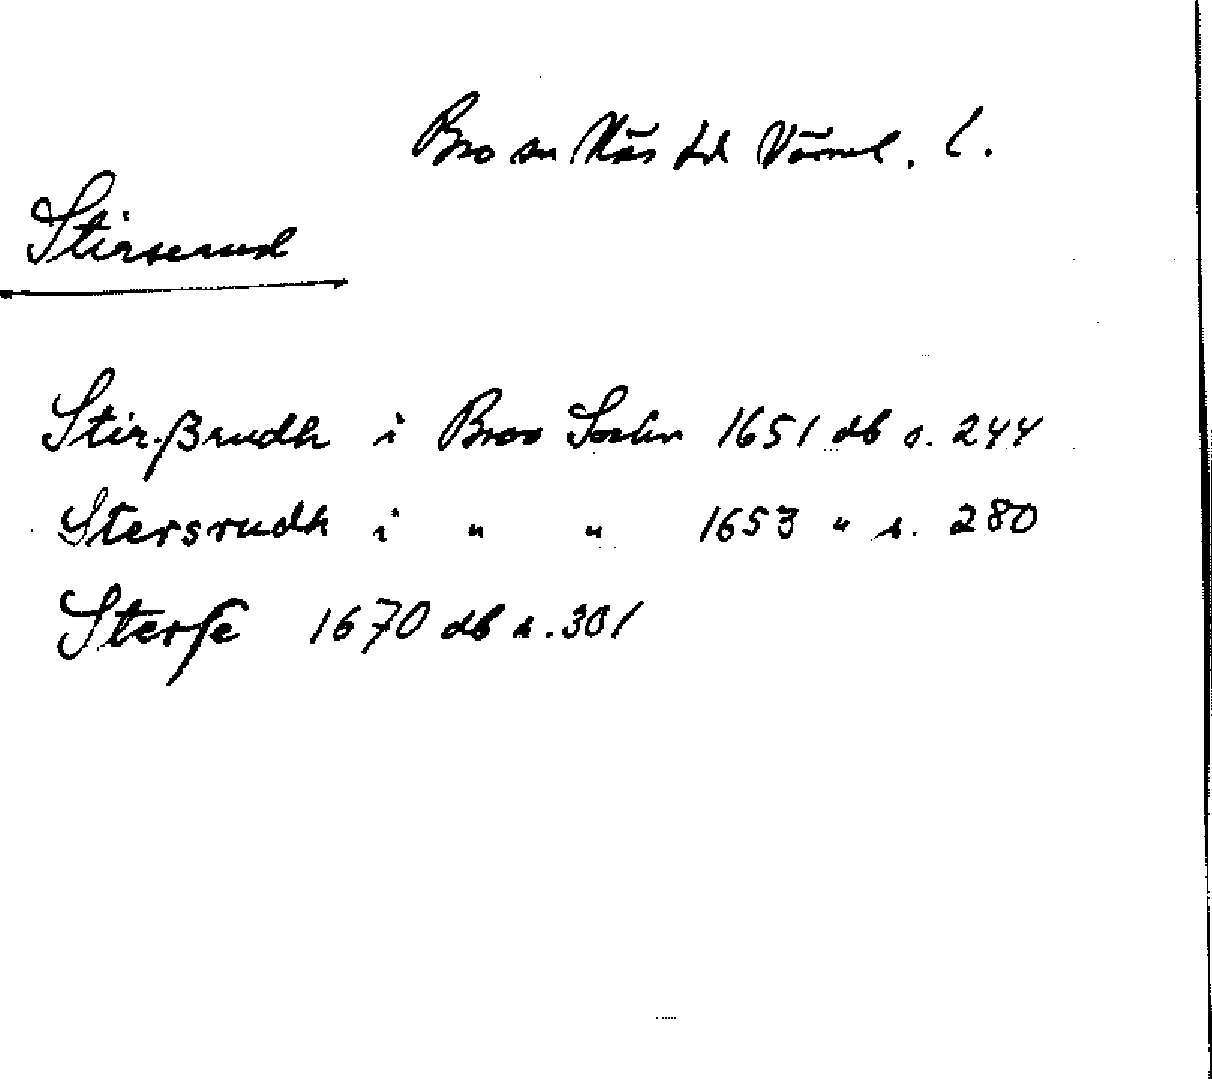 Bro sn Näs hd Värml. l.
Stirserud
Stirßrudh i Broo Sochn 1651 db s. 244
Stersrudh i " " 1653 " s. 280
Sterſe 1670 db s. 301